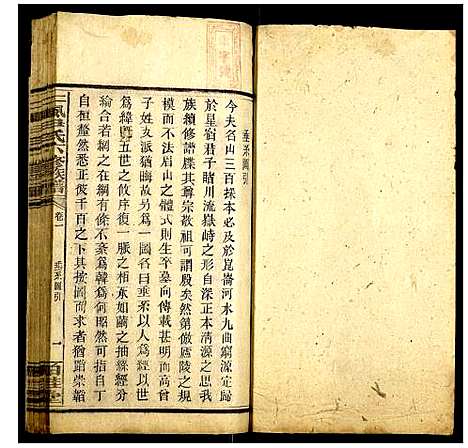 垂系圖引
今夫名山三百採本必及於崑崙河水九曲窮源定歸
於星宿君子視川流嶽峙之形自深正本清源之思我
族續修譜牒其尊宗敬祖可謂殷矣然第倣廬陵之規
模而不法眉山之體式則生卒墓向傳載甚明而高曾
子姓支派猶晦故另為一圖名曰垂系以人為經以世
為緯暨五世之攸序復一脈之栢東如繭之抽絲經分
綸合若綱之在綱有條不紊為韓為何昭然可指自丁
自桓釐然悉正彼千百之下其按圖而求者猶蹈崇韜
氏六修族譜
卷一
垂系圖引
一